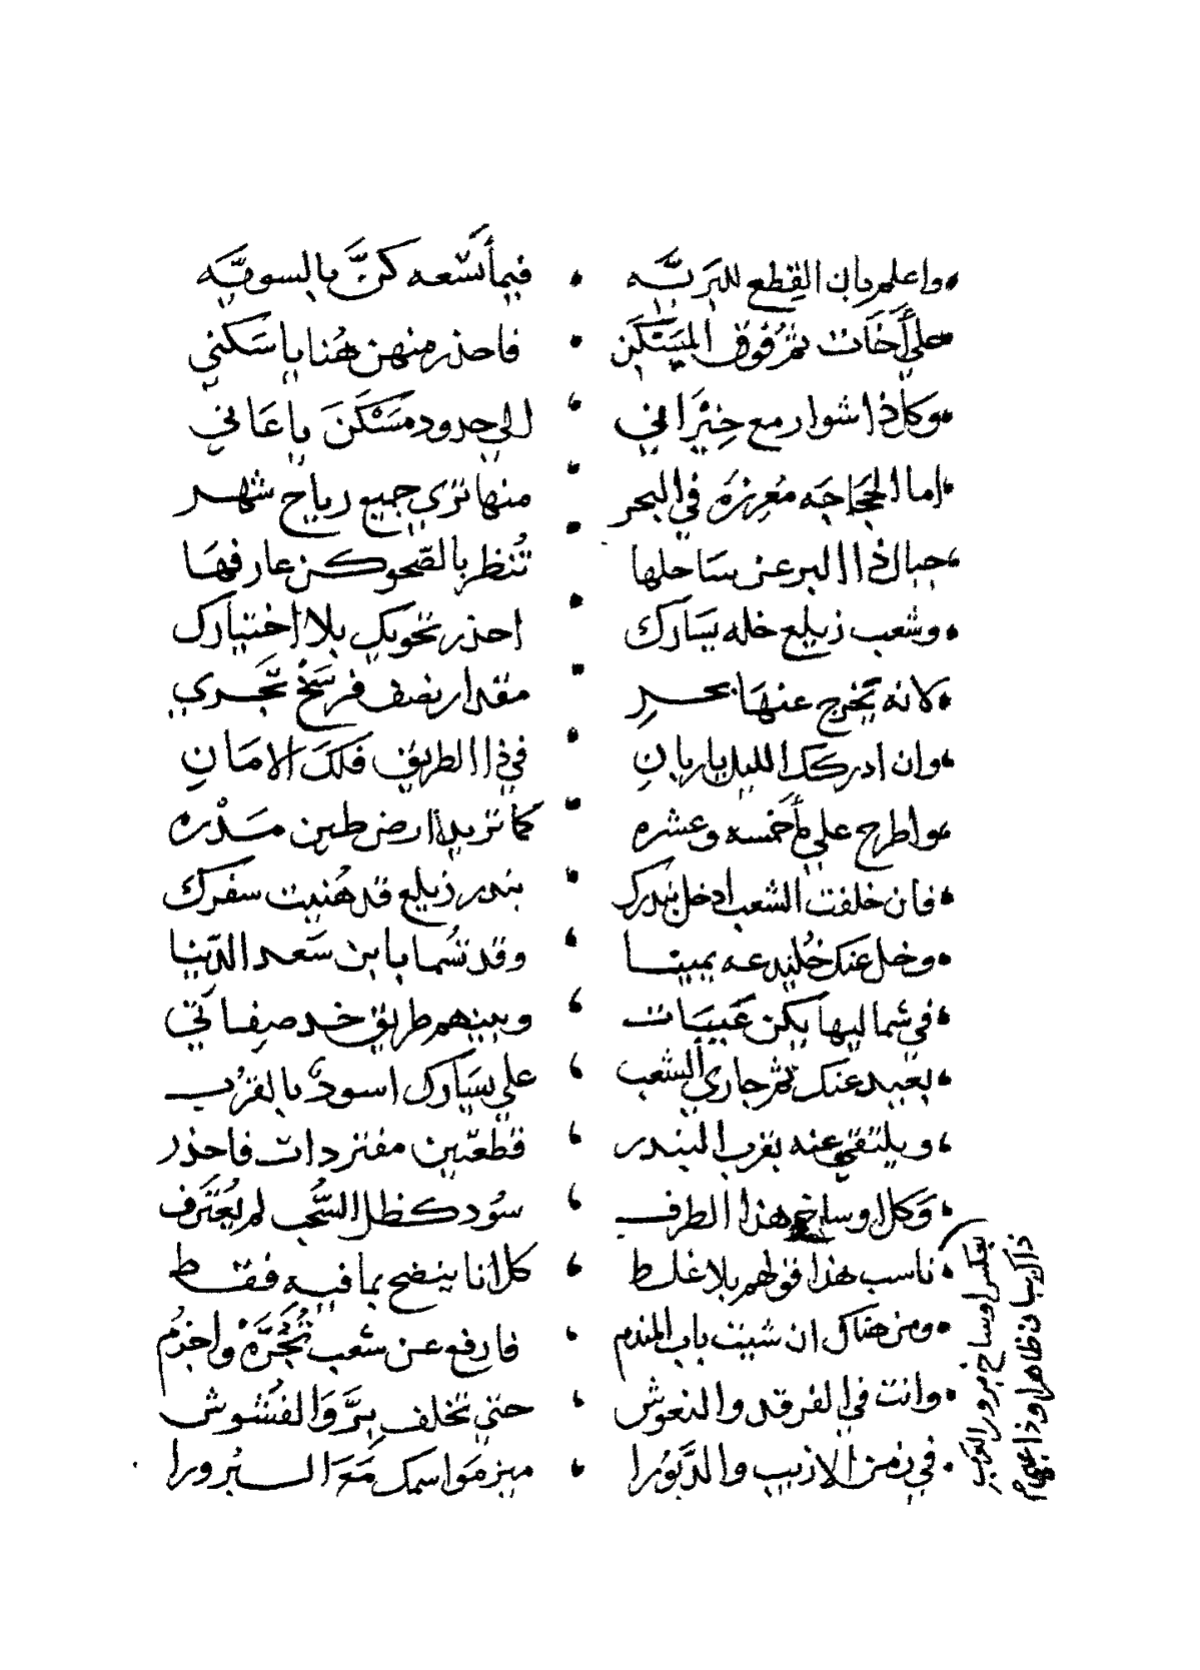 واعلم بان القِطع للبَريَّه • فيما أتسْعه كنَّ بالسويَّه
علي أخَات ثم فُوق المسَتكَن • فاحذر منهن هُنا يا سَكني
وكل ذا شوار مع خِنْزَاني • الي حدود مَسْكنَ يا عَاني
اما الحَجَاجَه مغِزِره في البحر • منها تري جميع رياح شهر
جبال ذا البر عن سَاحلها • تُنظر بالصّحو كن عارفهَا
وشعب زيلع خله يسَارك • احذر تخويك بلا اختيارك
لانه يَخرج عنهَا بحرِ • مقدار نصف فرسَخ تَجري
وان ادركك الليل يا ربانِ • في ذا الطريق فَلكَ الامَانِ
واطرح علي مأخمسه وعشره • كما تريد ارض طين مَدْره
فان خلفت الشعب ادخل بندرك • بندر زيلع قد هُنيت سفرك
وخل عنك خُليدعه يمينا • وقد تسُما يا ابن سَعد الدّينا
في شماليها يكن عَيبَيات • وبينهم طريق خد صِفاتي
بعيد عنك ثم جاري الشعب • علي يسَارك اسودٌ بالقرُب
ويلتقي عنه بقرب البندر • قطعتين مفتردات فاحذر
وَكل اوساخ هذا الطرف • سُود كظل السُّحب لم يُعَترف
ناسب هذا قولهم بلا غلط • كل انا ينضح بما فيه فقط
ومن هناك ان شيت باب المندم • فارفع عن شعب تُجُرَّهْ واجزمُ
وانت في الفرقد والنعوش • حتي تخلف برَّ وَالفشُوش
في زمن الازيب والدَّبوُرا • ميز مَواسمك مَعَ السبُرورا
بعكس اوساخ مرور الغرب
ذاك بيان ظاهرا وذا عجم